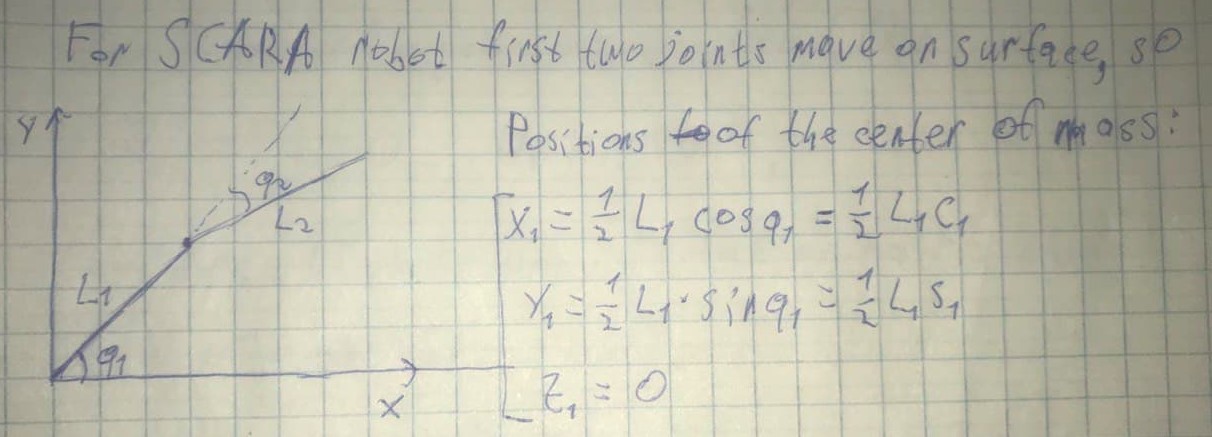 For SCARA robot first two joints move on surface, so
Y
Positions of the center of mass:
q2
L2
X₁ = 1/2 L₁ cos q₁ = 1/2 L₁ C₁
L1
Y₁ = 1/2 L₁ · sin q₁ = 1/2 L₁ S₁
q1
X
Z₁ = 0